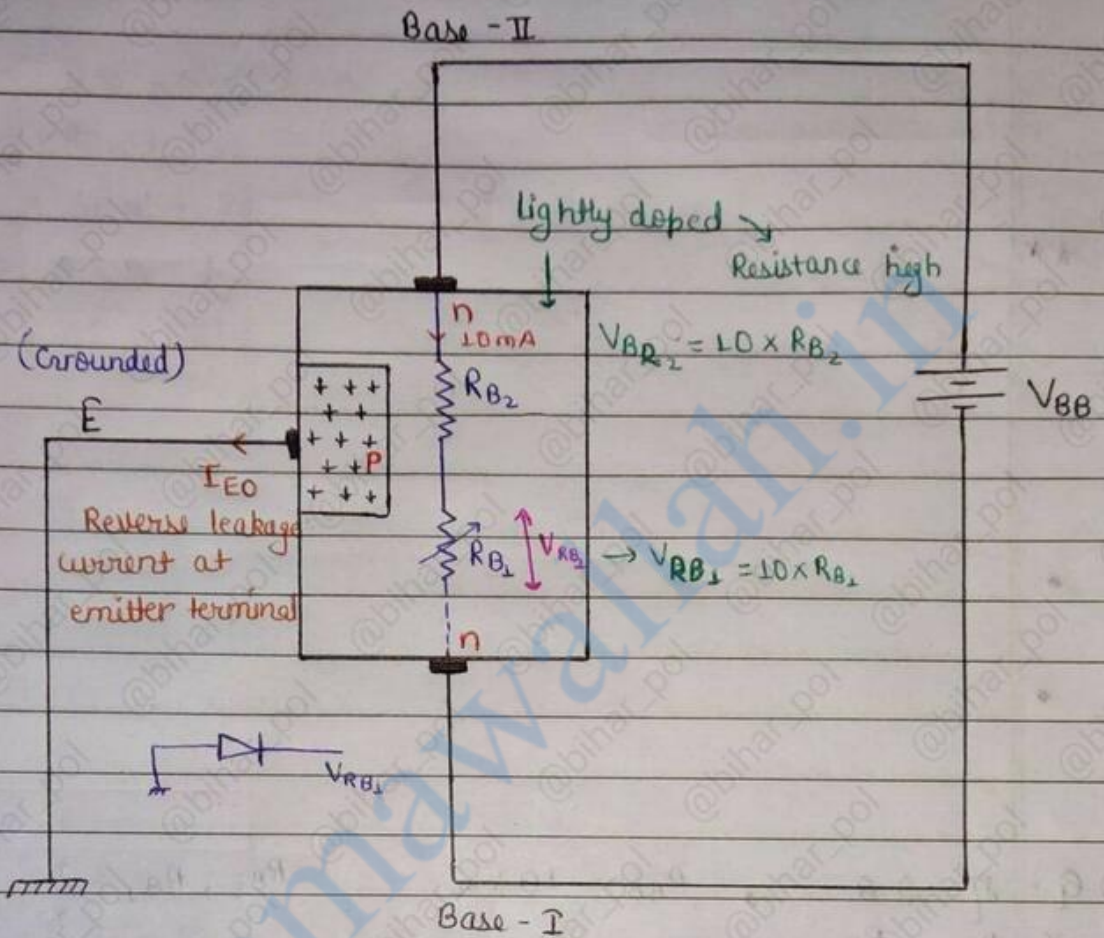 Base - II
lightly doped
Resistance high
n
10mA
V_BR₂ = 10 × R_B₂
(Grounded)
+ + +
+ +
+ + +
+ +
+ + +
R_B₂
V_BB
E
P
I_EO
Reverse leakage
current at
emitter terminal
R_B₁
V_RB₁ → V_RB₁ = 10 × R_B₁
n
V_RB₁
Base - I
@bihar_pol
mawalah.in